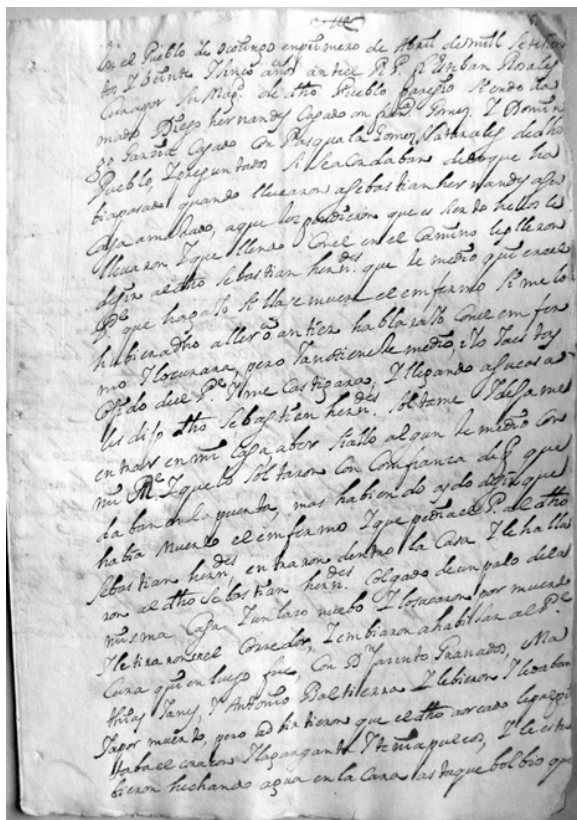 En el Pueblo de Ocotingo en primero de Abril de mill setesien
tos Y beinte Y sinco años antte el R. P. F. Esteban Rosales
Cura por su Mag.d de dho Pueblo paresio siendo lla
mado Diego hernandes Casado con Gomes. Y Domin
go Garsia Casado Con Pasquala Gomes, Naturales de dho
Pueblo, Y preguntados si se acordaban de lo que ha
bia pasado quando llevaron a Sebastian hernandes a su
Casa amarrado, a que los que es siendo hellos le
llevaron Y que llendo Con el en el Camino le
desir al dho Sebastian hern.des que le medio que en el
P.e que hago Yo si lla se muere el emfermo si me lo
hubiera dho aller o antier hablara Yo Con el emfer
mo Y lo curara, pero Ya no tiene rremedio, Yo Ya estoy
Cojido del P.e Y me Castigara; Y llegando a su casa
les dijo dho Sebastian hern.des soltame Y dejame
entrar en mi Casa a ber si allo algun rremedio Con
mi Y que lo soltaron Con Comfianza de q que
daban en la puerta, mas habiendo oydo desir que
habia muerto el emfermo Y que pedia el P.e al dho
Sebastian hern.des, entraron dentro la Casa Y le halla
ron al dho Sebastian hern.des Colgado de un palo de la
misma Casa Y un lazo nuebo Y lo sacaron por muerto
Y le tiraron en el Corredor, Y embiaron a habissar al P.e
Cura quien luego fue, Con D.n Jasinto Granados, Ma
thias Yanes, Y Antonio Baltierra Y le bieron Y lloraban
Ya por muerto, pero adbirtieron que el dho aorcado le palpi
taba el corason Y la garganta Y tenia pulsos, Y le estu
bieron hechando agua en la Cara asta que bolbio que